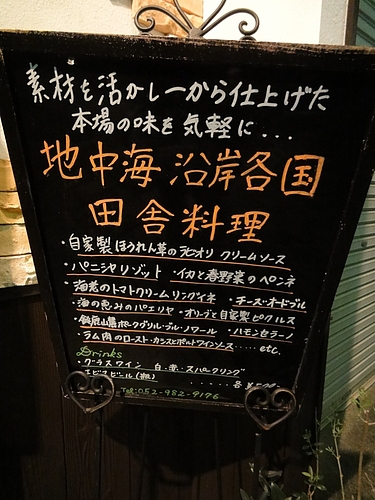 素材を活かし一から仕上げた
本場の味を気軽に...
地中海沿岸各国
田舎料理
・自家製ほうれん草のラビオリ クリームソース
・パニシャリゾット ・イカと春野菜のペンネ
・海老のトマトクリームリングイネ ・チーズ・オードブル
・海の恵みのパエリヤ ・オリーブと自家製ピクルス
・鈴鹿山麓ポークグリル・ブル・ノワール ・ハモンセラーノ
・ラム肉のロースト・カシスとポルトワインソース.....etc.
Drinks
・グラスワイン 白・赤・スパークリング
・エビスビール(瓶) ......各
Tel:052-982-9176